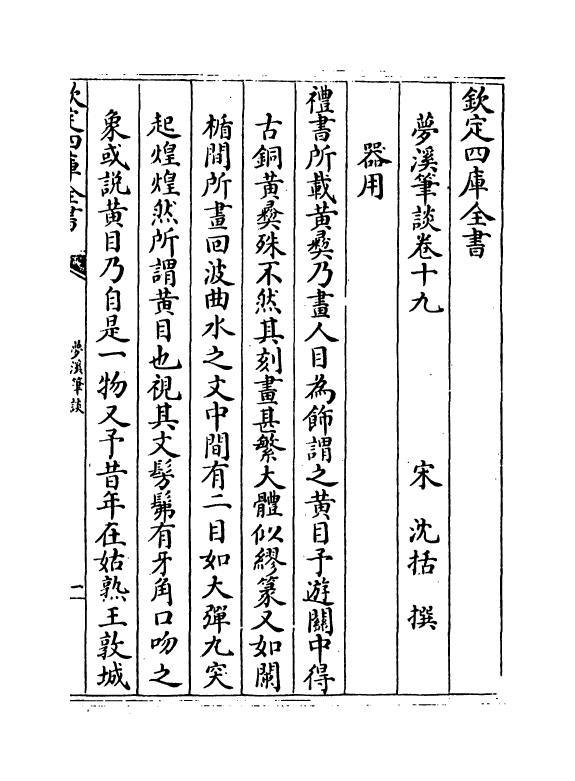 欽定四庫全書
夢溪筆談卷十九
宋 沈括 撰
器用
禮書所載黄彜乃畫人目為飾謂之黄目予遊關中得
古銅黄彜殊不然其刻畫甚繁大體似繆篆又如闌
楯間所畫回波曲水之文中間有二目如大彈丸突
起煌煌然所謂黄目也視其文髣髴有牙角口吻之
象或説黄目乃自是一物又予昔年在姑熟王敦城
欽定四庫全書
夢溪筆談
一